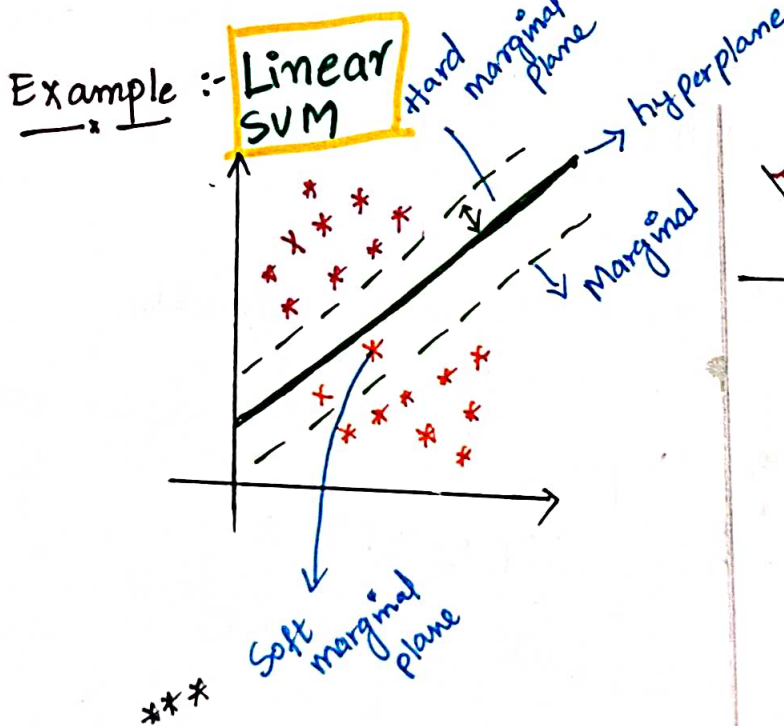 Example :- Linear
SVM
Hard
marginal
plane
hyperplane
Marginal
Soft
marginal
plane
***